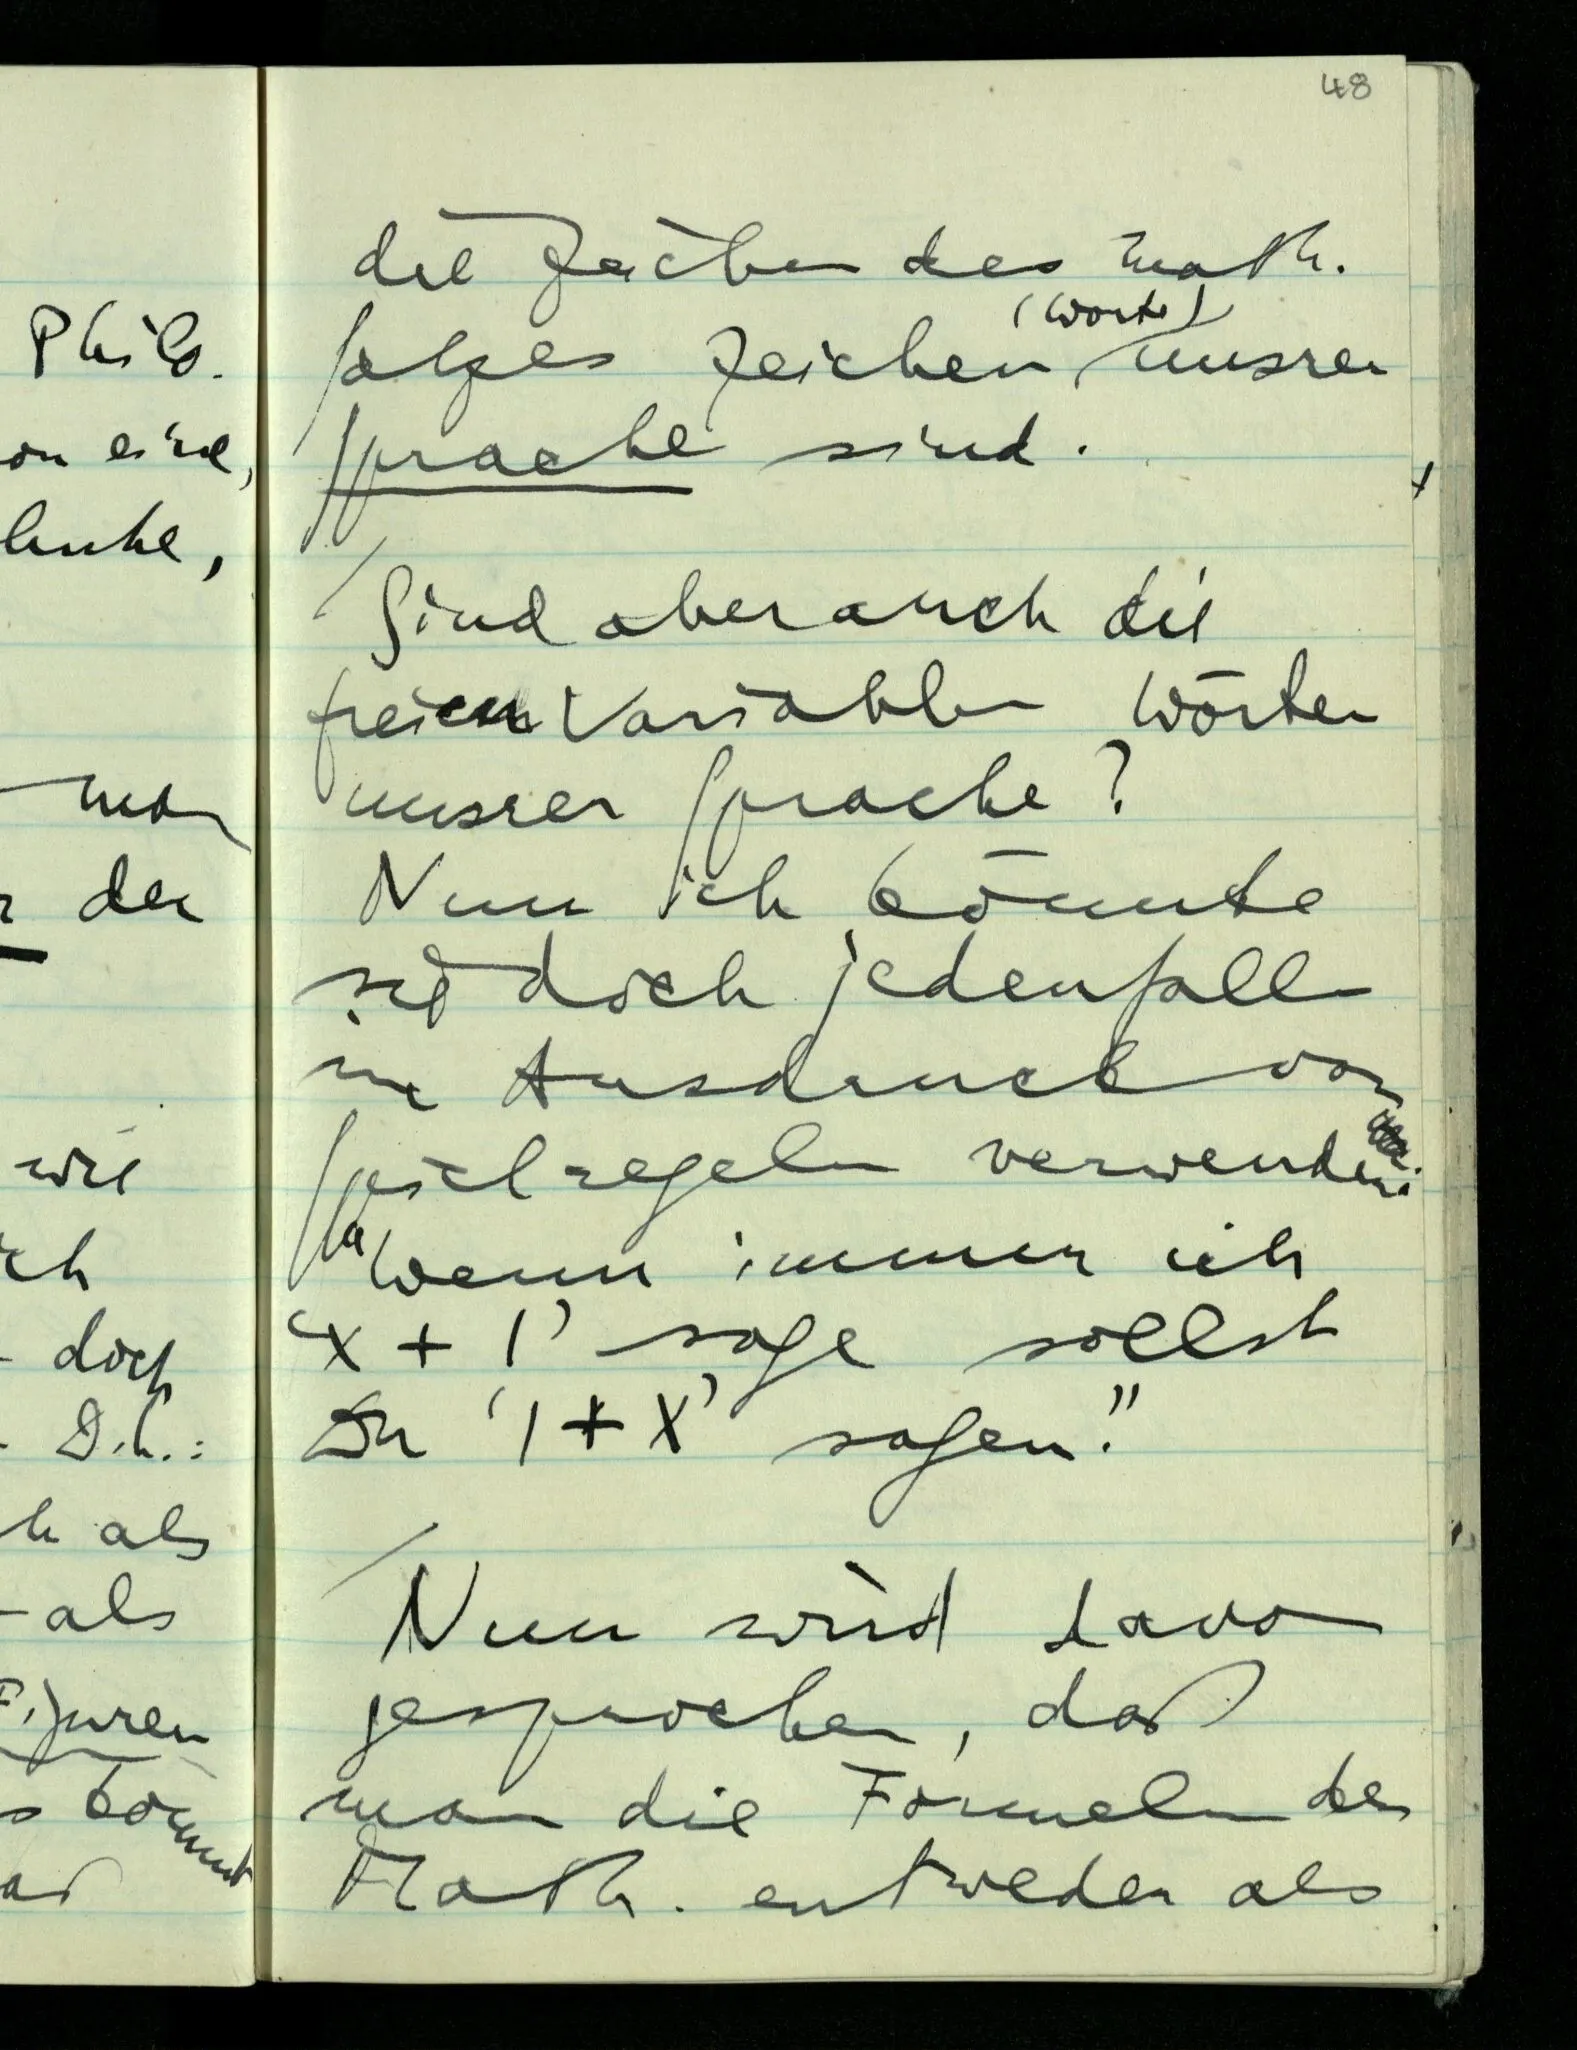 48
Philo.
on eine,
man
der
wie
doch
D.h.:
als
als
Figuren
könnt
die Zeichen des math.
(Worte)
Satzes Zeichen unsrer
Sprache sind.
Sind aber auch die
freien Variablen Wörter
unsrer Sprache?
Nun ich könnte
sie doch jedenfalls
im Ausdruck von
Spielregeln verwenden:
"Wenn immer ich
‘x + 1’ sage sollst
Du ‘1 + x’ sagen."
Nun wird davon
gesprochen, daß
man die Formeln der
Math. entweder als